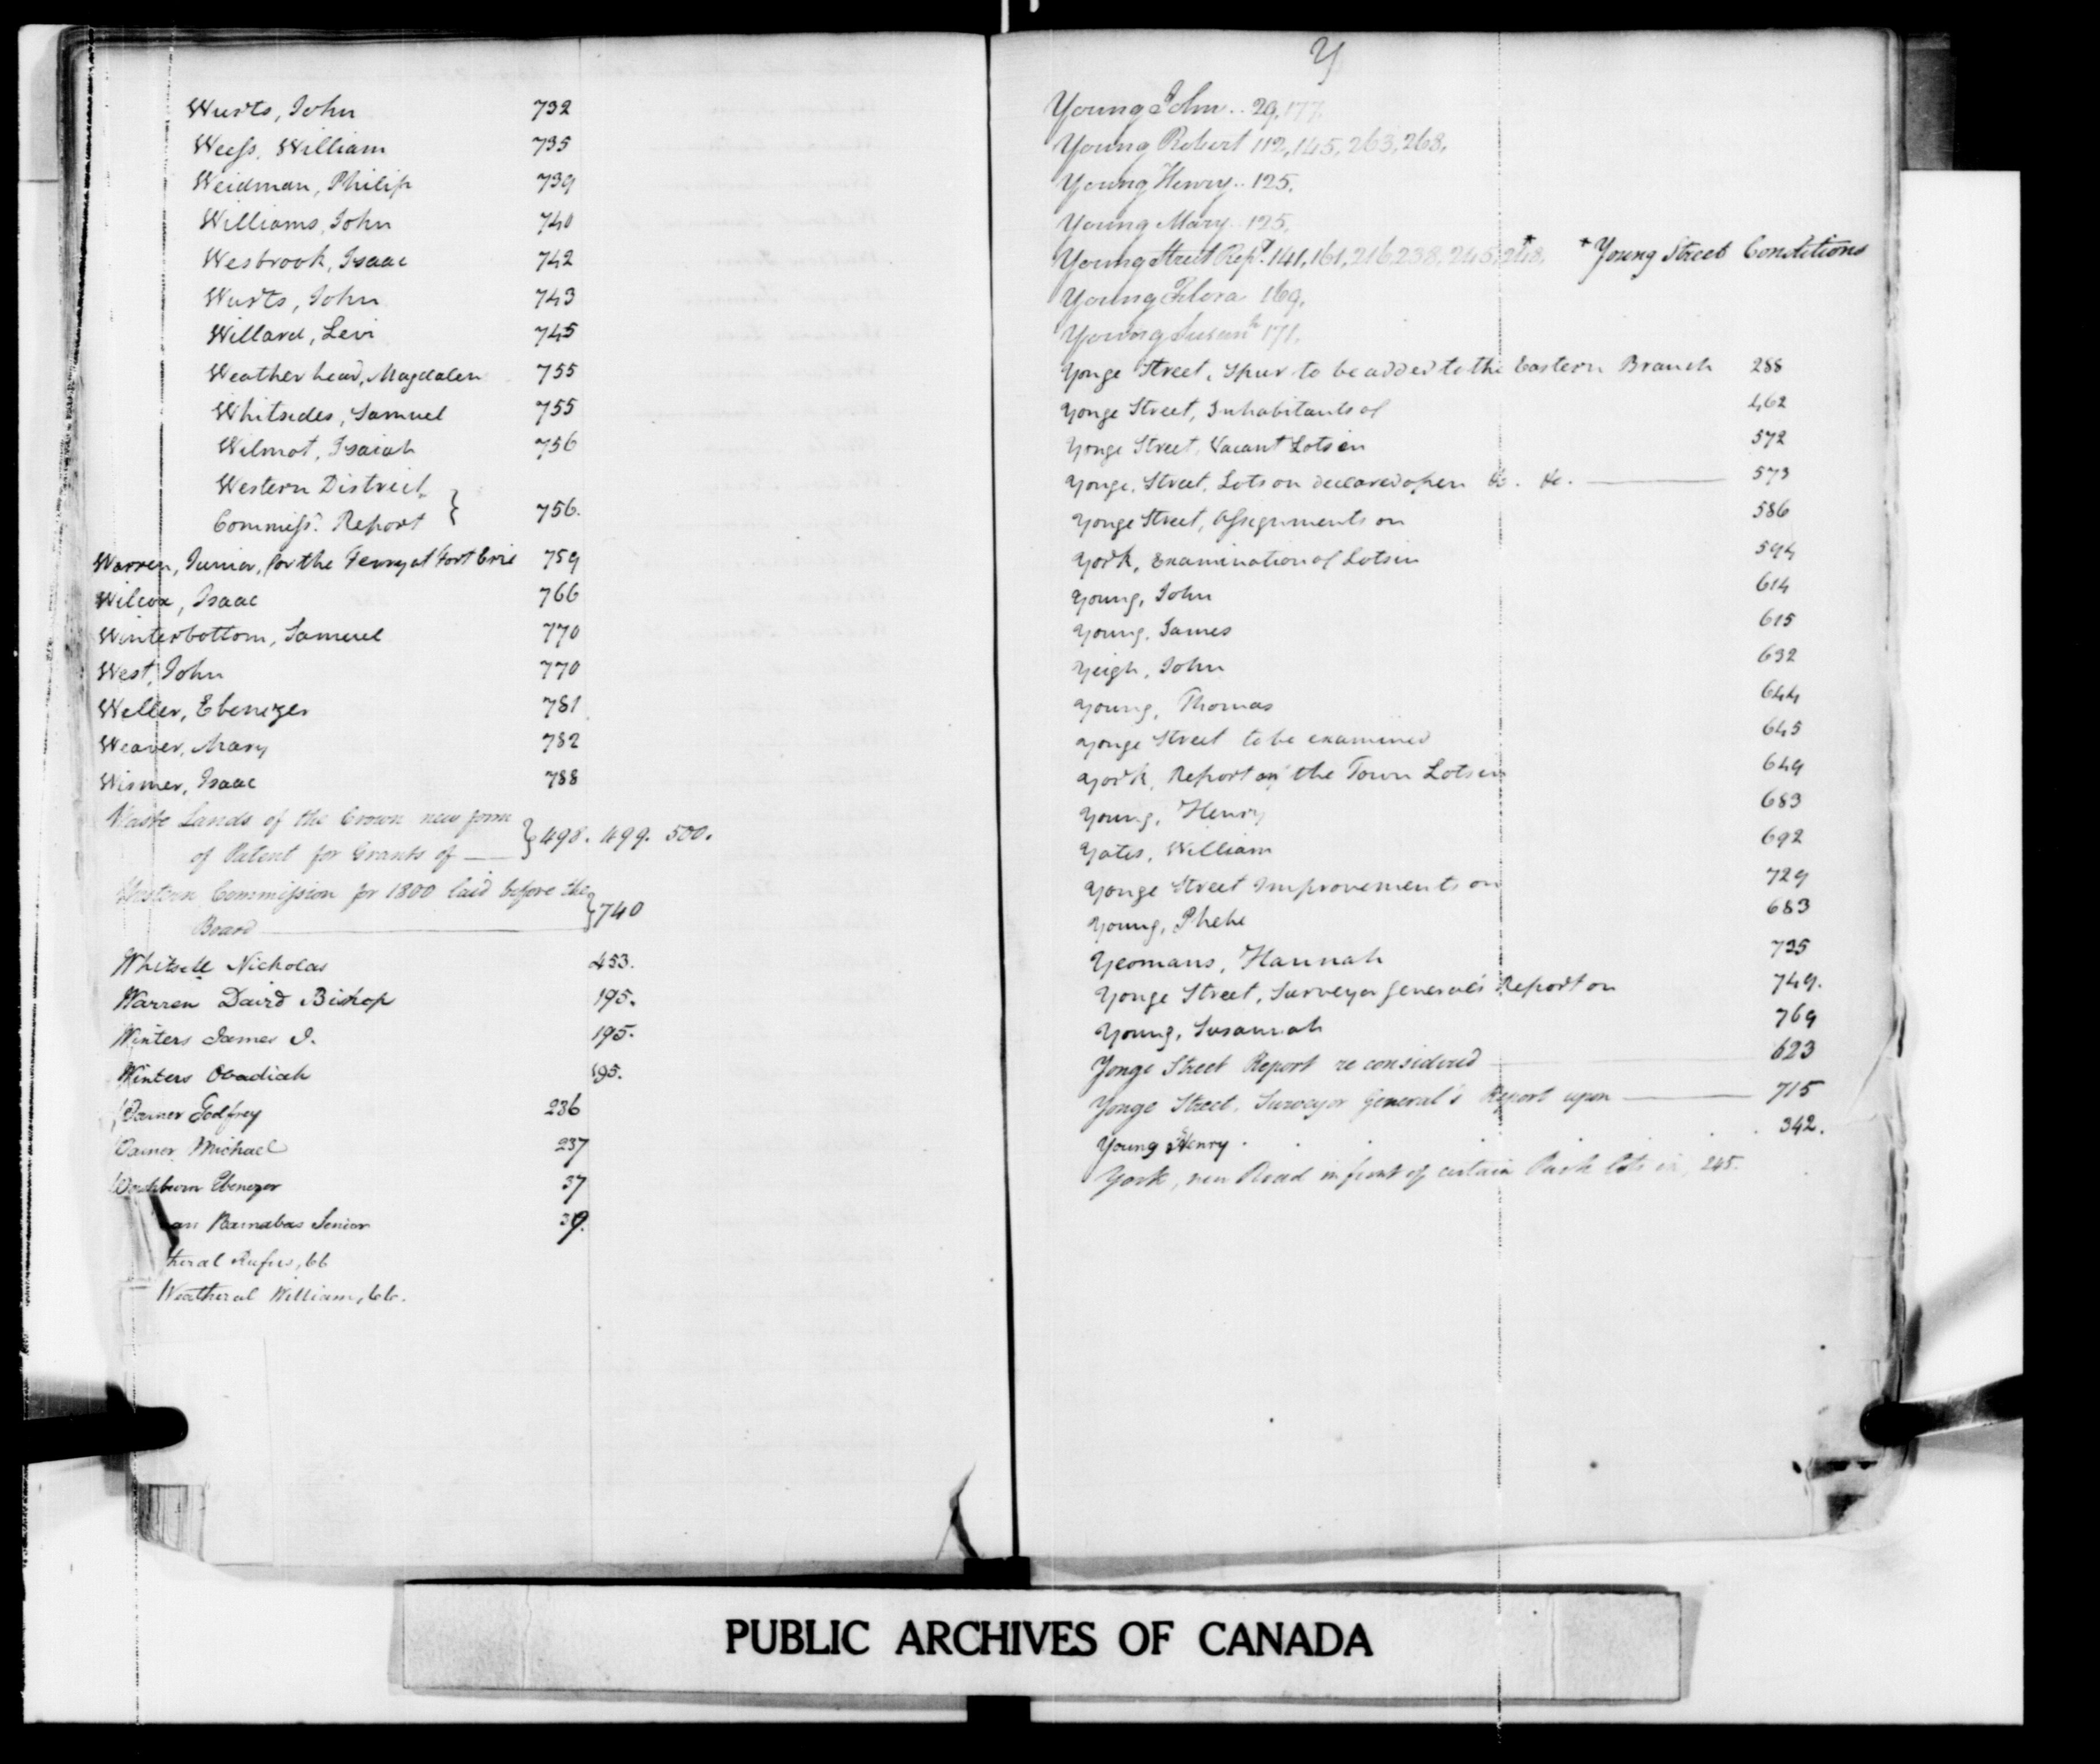 Wurts, John 732
Weeſs, William 735
Weidman, Philip 739
Williams, John 740
Wesbrook, Isaac 742
Wurts, John 743
Willard, Levi 745
Weatherhead, Magdalen 755
Whitsides, Samuel 755
Wilmot, Isaiah 756
Western District,
Commiſs.r Report } 756.
Warren, Junior, for the Ferry at Fort Erie 759
Wilcox, Isaac 766
Winterbottom, Samuel 770
West, John 770
Weller, Ebenezer 781
Weaver, Mary 782
Wismer, Isaac 788
Waste Lands of the Crown new form
of Patent for Grants of } 498. 499. 500.
Western Commiſsion for 1800 laid before the
Board } 740
Whitsell Nicholas 453.
Warren David Bishop 195.
Winters James J. 195.
Winters Obadiah 195.
Warner Godfrey 236
Warner Michael 237
Washburn Ebenezer 37
Barnabas Senior 39.
theral Rufus, 66
Weatheral William, 66.
Y
Young John .. 29, 177.
Young Robert 112, 145, 263, 268.
Young Henry .. 125.
Young Mary 125.
Young Street Rep.t 141, 161, 216, 238, 245, 248.* *Young Street Conditions
Young Flora 169.
Young Susan.h 171.
Yonge Street, Spur to be added to the Eastern Branch 288
Yonge Street, Inhabitants of 462
Yonge Street, Vacant Lots in 572
Yonge, Street, Lots on declared open &c. &c. 573
Yonge Street, Aſsignments on 586
York, Examination of Lots in 594
Young, John 614
Young, James 615
Yeigh, John 632
Young, Thomas 644
Yonge Street to be examined 645
York, Report on the Town Lots in 649
Young, Henry 683
Yates, William 692
Yonge Street Improvements on 729
Young, Phebe 683
Yeomans, Hannah 735
Yonge Street, Surveyor General's Report on 749.
Young, Susannah 769
Yonge Street Report re considered 623
Yonge Street, Surveyor General's Report upon 715
Young Henry . . . . 342.
York, new Road in front of certain Park lots in, 245.
PUBLIC ARCHIVES OF CANADA